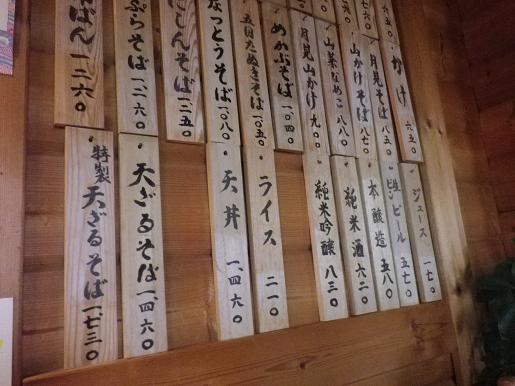 かけ 六五〇
月見そば 八五〇
山かけそば 八七〇
山菜なめこ 八八〇
月見山かけ 九
めかぶそば 一、〇四〇
五目たぬきそば 一、〇五〇
なっとうそば 一、〇八〇
しんそば 一、三五〇
ぷらそば 一、二六〇
ばん 一、二六〇
ジュース 一七〇
生ビール 五七〇
本醸造 五八〇
純米酒 六二〇
純米吟醸 八三〇
ライス 二一〇
天丼 一、四六〇
天ざるそば 一、四六〇
特製 天ざるそば 一、七三〇